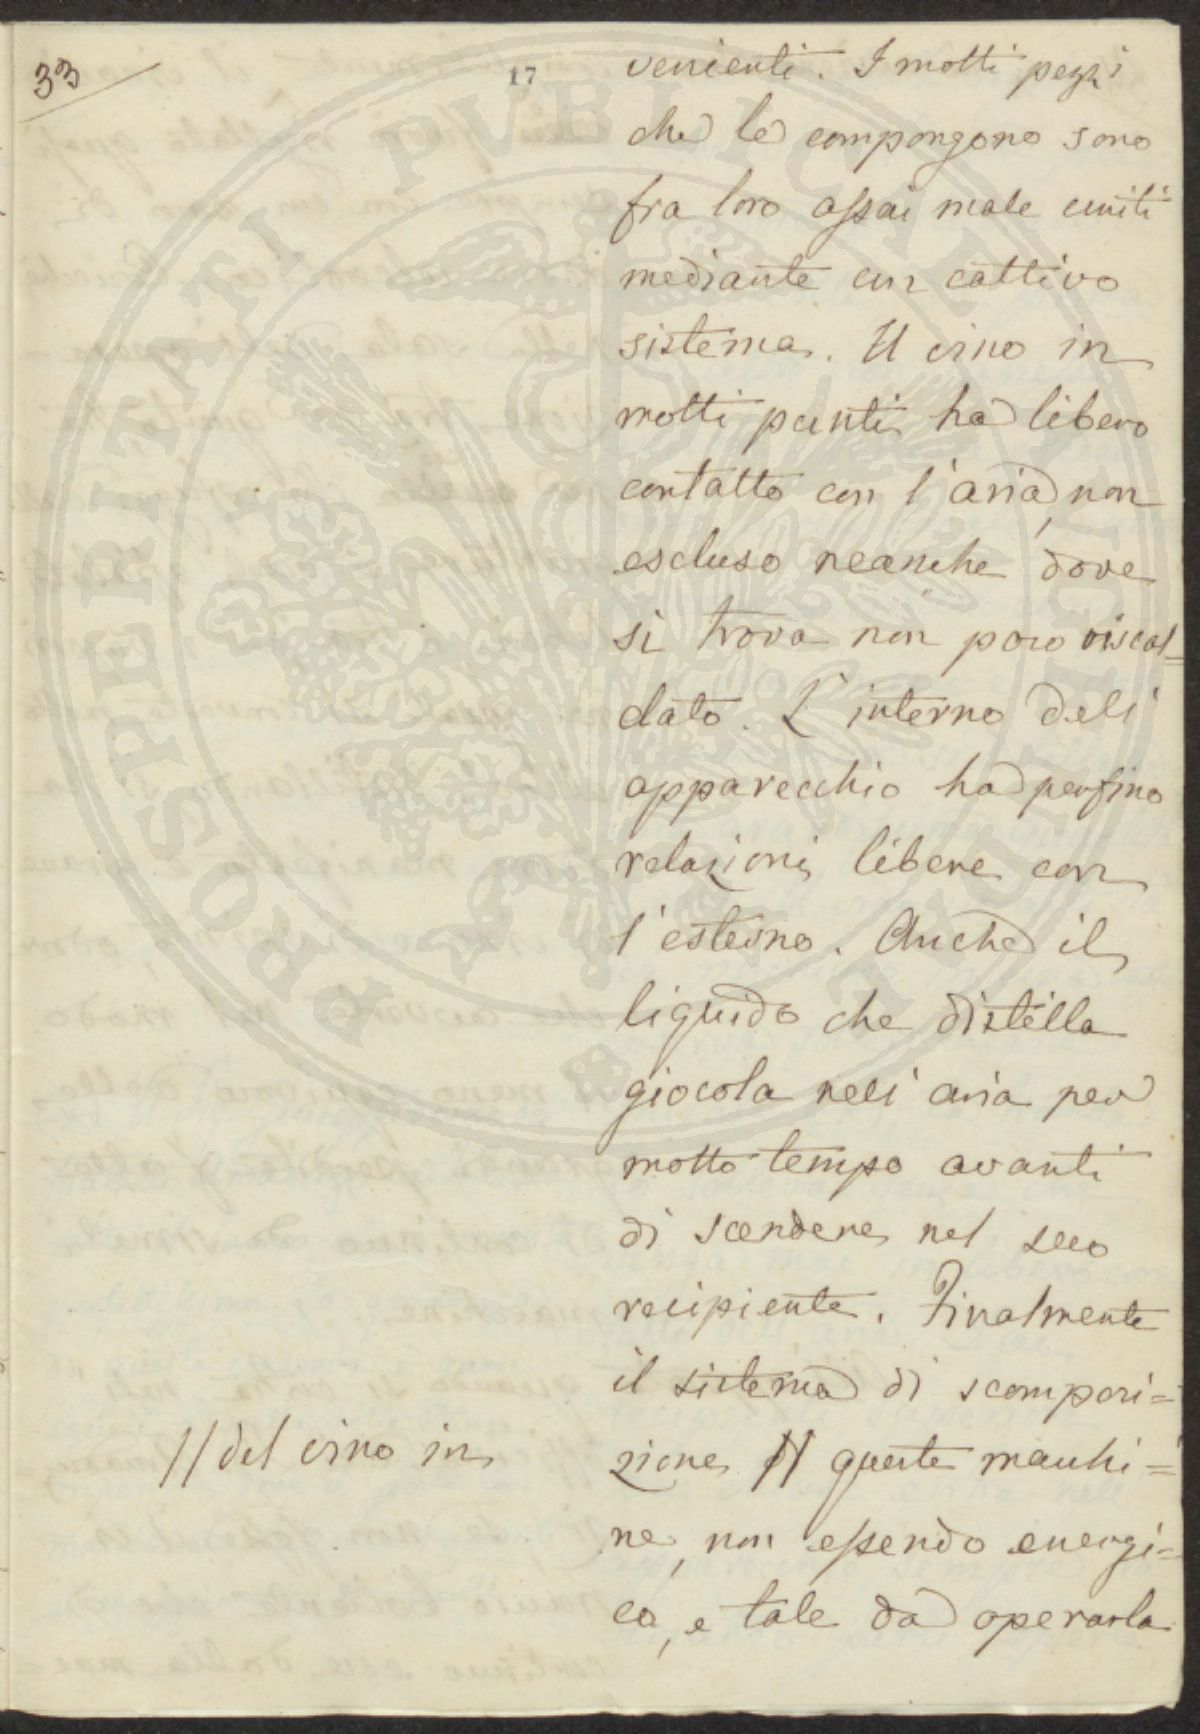 33
17
venienti. I molti pezzi
che le compongono sono
fra loro assai male uniti
mediante un cattivo
sistema. Il vino in
molti punti ha libero
contatto con l'aria, non
escluso neanche dove
si trova non poco riscal=
dato. L'interno dell'
apparecchio ha perfino
relazioni libere con
l'esterno. Anche il
liquido che distilla
giocola nell'aria per
molto tempo avanti
di scendere nel seco
recipiente. Finalmente
il sistema di scompozi=
zione // queste macchi=
// del vino in
ne, non essendo energi=
co, e tale da operarla
PROSPERITATI PUBLICAE